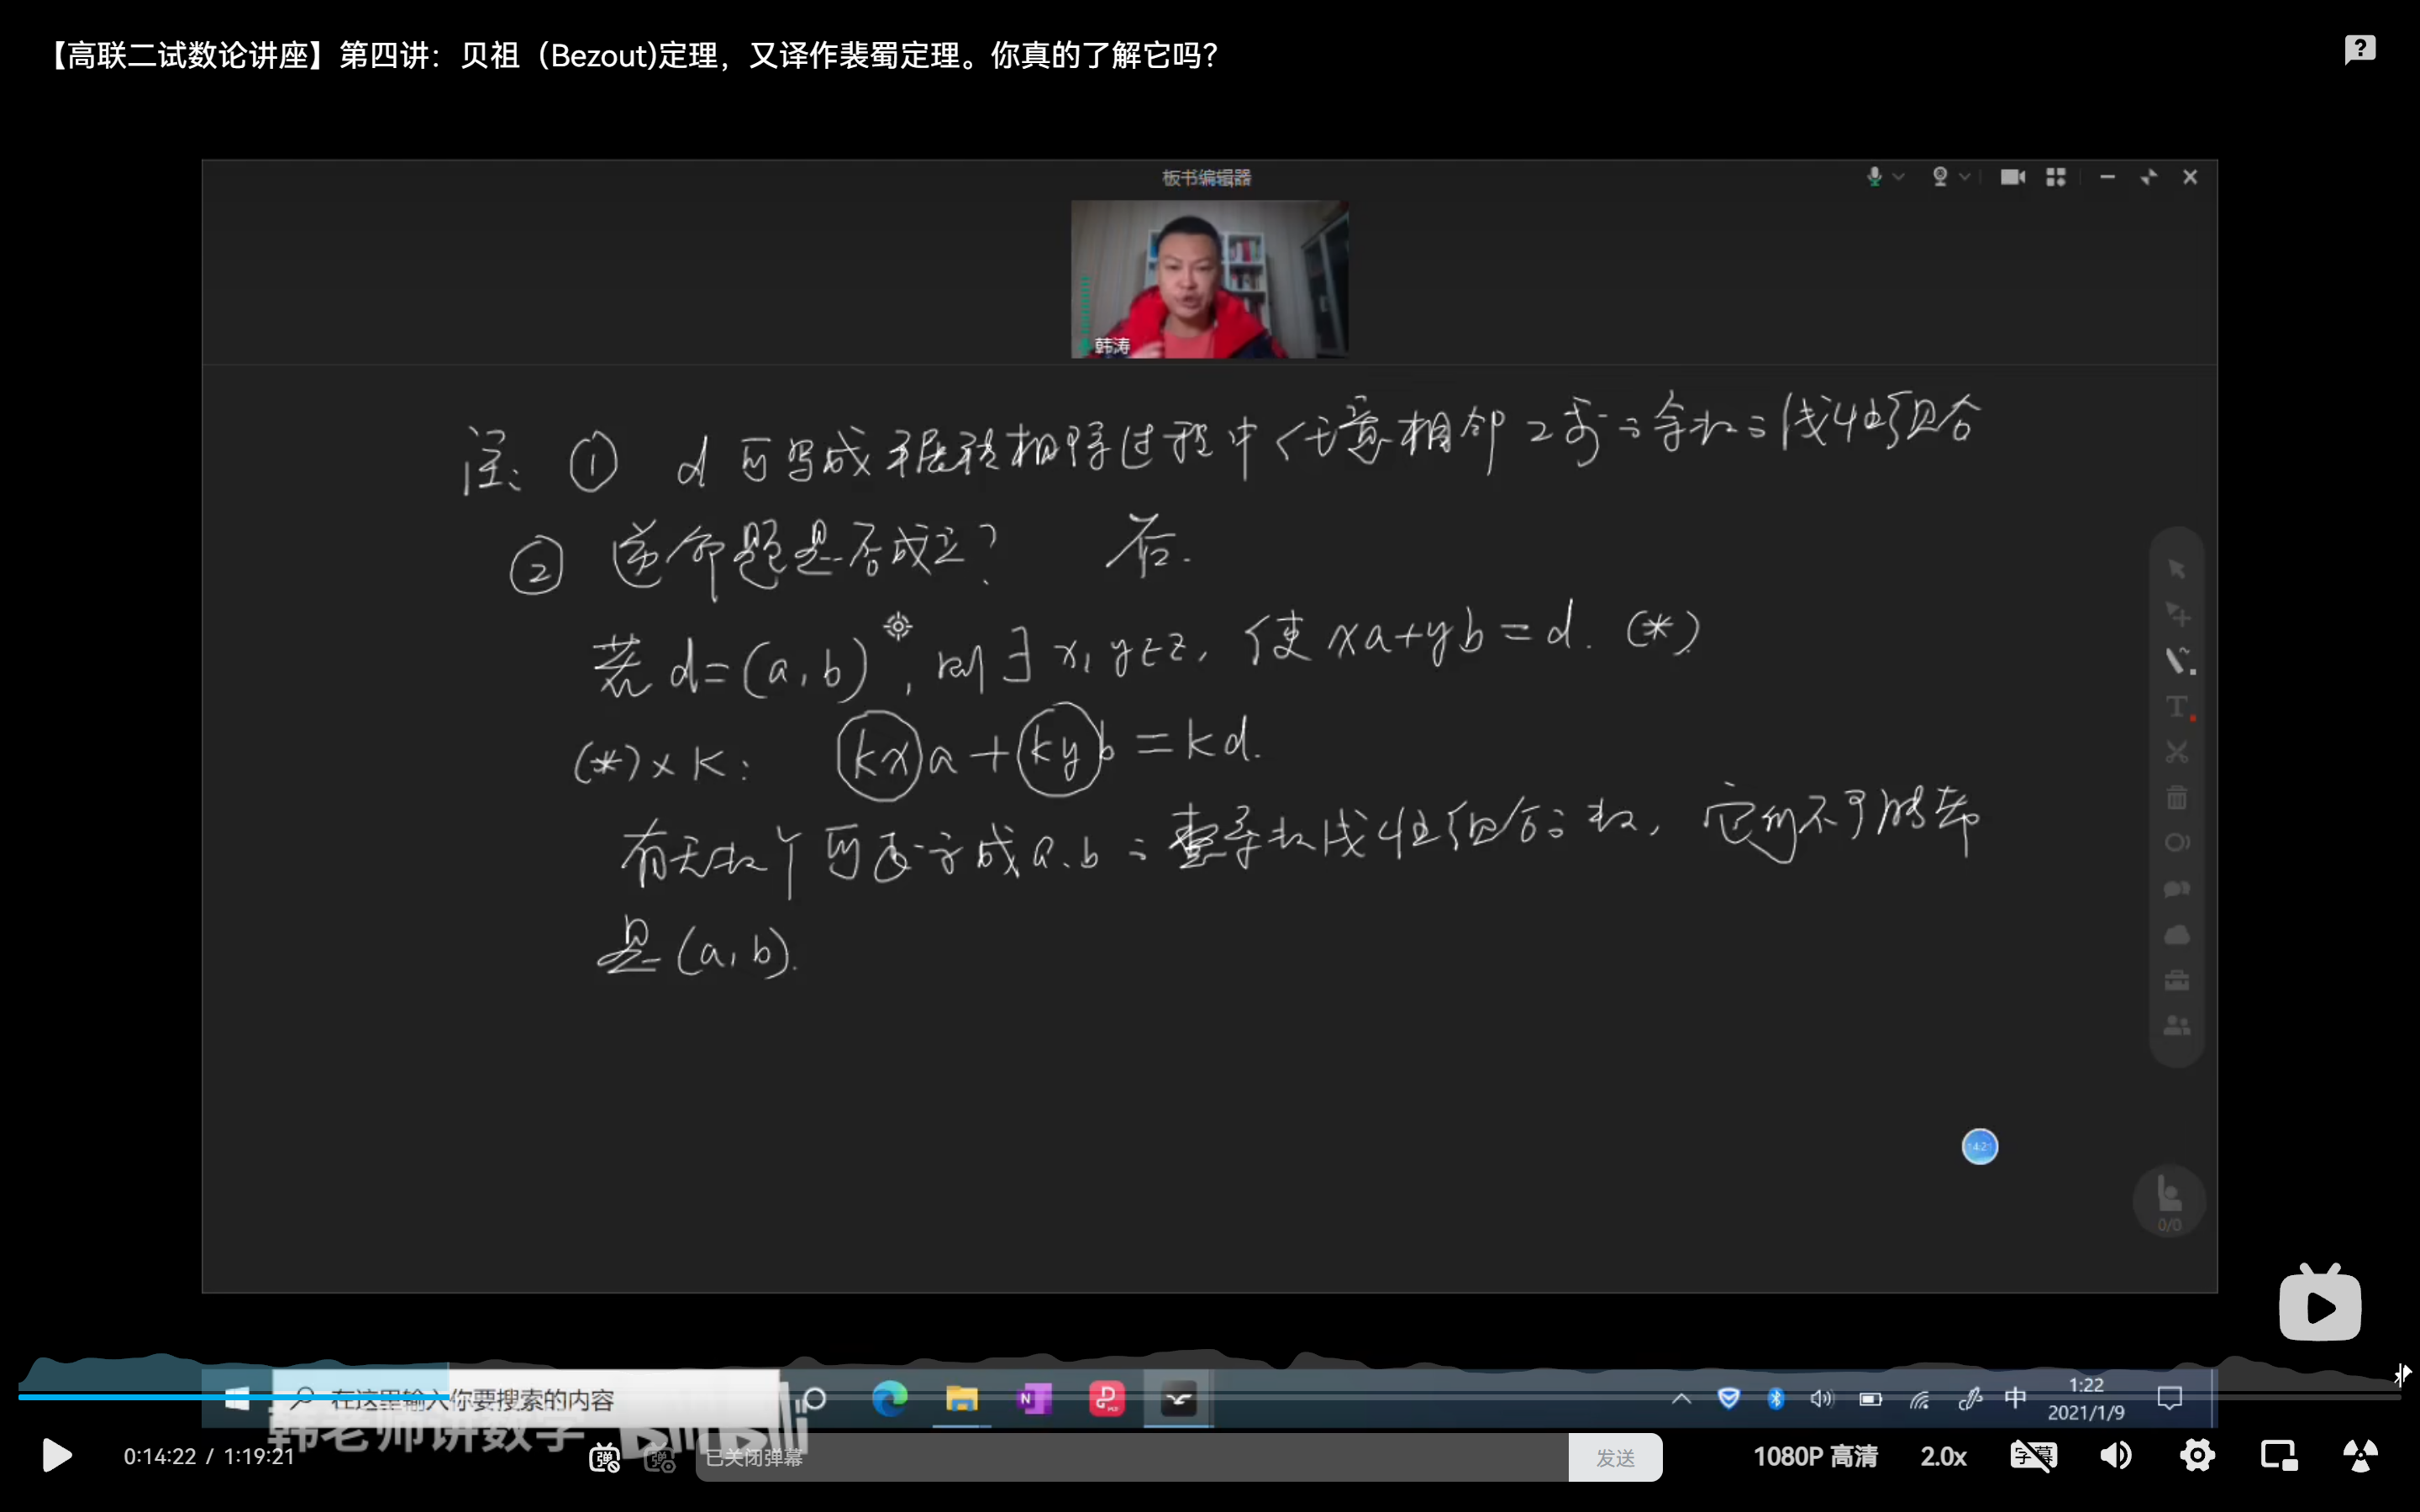 【高联二试数论讲座】第四讲：贝祖（Bezout)定理，又译作裴蜀定理。你真的了解它吗？
板书编辑器
韩涛
注、① d 可写成辗转相除过程中任意相邻2步之余数之线性组合
② 逆命题是否成立？ 否.
若 d=(a,b), 则∃x,y∈Z, 使 xa+yb=d. (*)
(*)×K: kxa+kyb=kd.
有无数个可表示成a.b之整系数线性组合之数, 它们不可能都
是(a,b).
14:21
0/0
在这里输入你要搜索的内容
1:22
中
2021/1/9
韩老师讲数学 bilibili
0:14:22 / 1:19:21
弹
弹
已关闭弹幕
发送
1080P 高清
2.0x
字幕